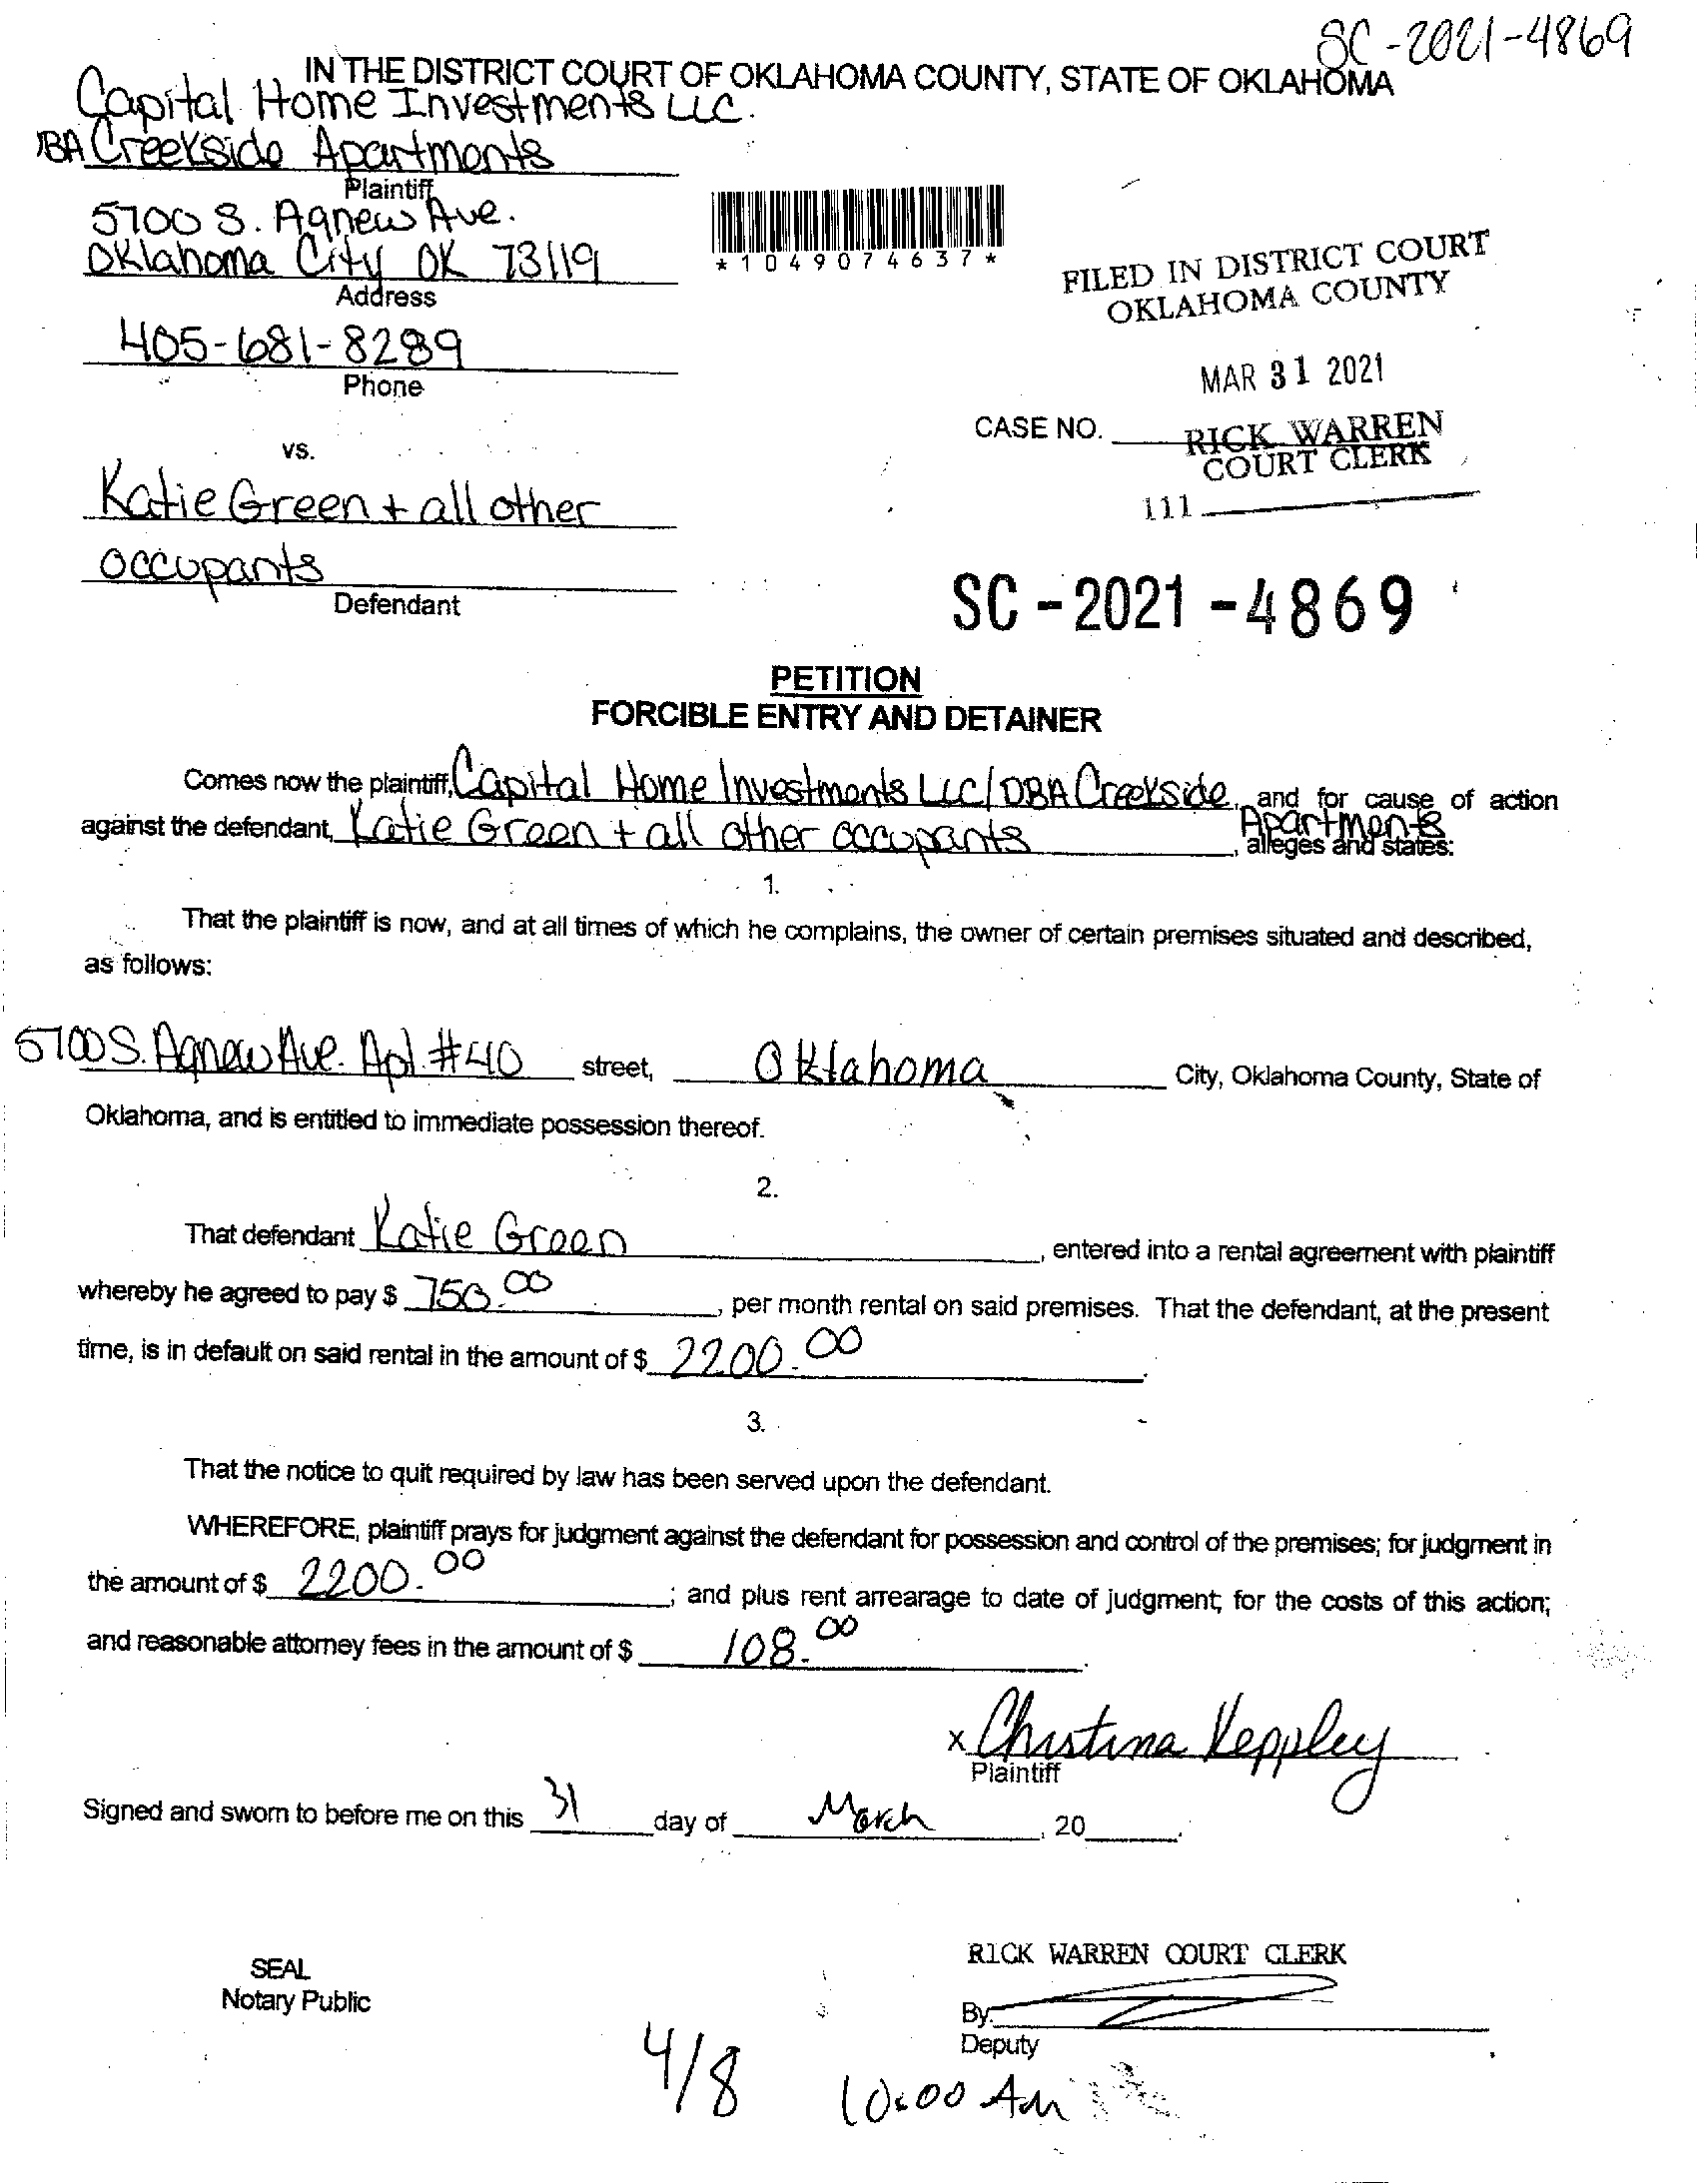 SC-2021-4869
IN THE DISTRICT COURT OF OKLAHOMA COUNTY, STATE OF OKLAHOMA
Capital Home Investments LLC.
DBA Creekside Apartments
Plaintiff
5700 S. Agnew Ave.
Oklahoma City OK 73119
Address
405-681-8289
Phone
*1049074637*
FILED IN DISTRICT COURT
OKLAHOMA COUNTY
MAR 31 2021
CASE NO.
RICK WARREN
COURT CLERK
111
vs.
Katie Green + all other
occupants
Defendant
SC-2021-4869
PETITION
FORCIBLE ENTRY AND DETAINER
Comes now the plaintiff, Capital Home Investments LLC/DBA Creekside, and for cause of action
Apartments
against the defendant, Katie Green + all other occupants, alleges and states:
1.
That the plaintiff is now, and at all times of which he complains, the owner of certain premises situated and described,
as follows:
5700 S. Agnew Ave. Apt. #40 street, Oklahoma City, Oklahoma County, State of
Oklahoma, and is entitled to immediate possession thereof.
2.
That defendant Katie Green, entered into a rental agreement with plaintiff
whereby he agreed to pay $ 750.00, per month rental on said premises. That the defendant, at the present
time, is in default on said rental in the amount of $ 2200.00.
3.
That the notice to quit required by law has been served upon the defendant.
WHEREFORE, plaintiff prays for judgment against the defendant for possession and control of the premises; for judgment in
the amount of $ 2200.00; and plus rent arrearage to date of judgment; for the costs of this action;
and reasonable attorney fees in the amount of $ 108.00.
x Christina Keppley
Plaintiff
Signed and sworn to before me on this 31 day of March, 20.
SEAL
Notary Public
RICK WARREN COURT CLERK
By:
Deputy
4/8 10:00 AM